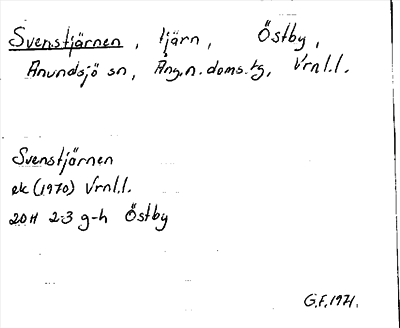 Svenstjärnen, tjärn, Östby,
Anundsjö sn, Ång.n.doms.tg, Vrnl.l.
Svenstjärnen
ek (1970) Vrnl.l.
20H 2-3 g-h Östby
G.F. 1971.